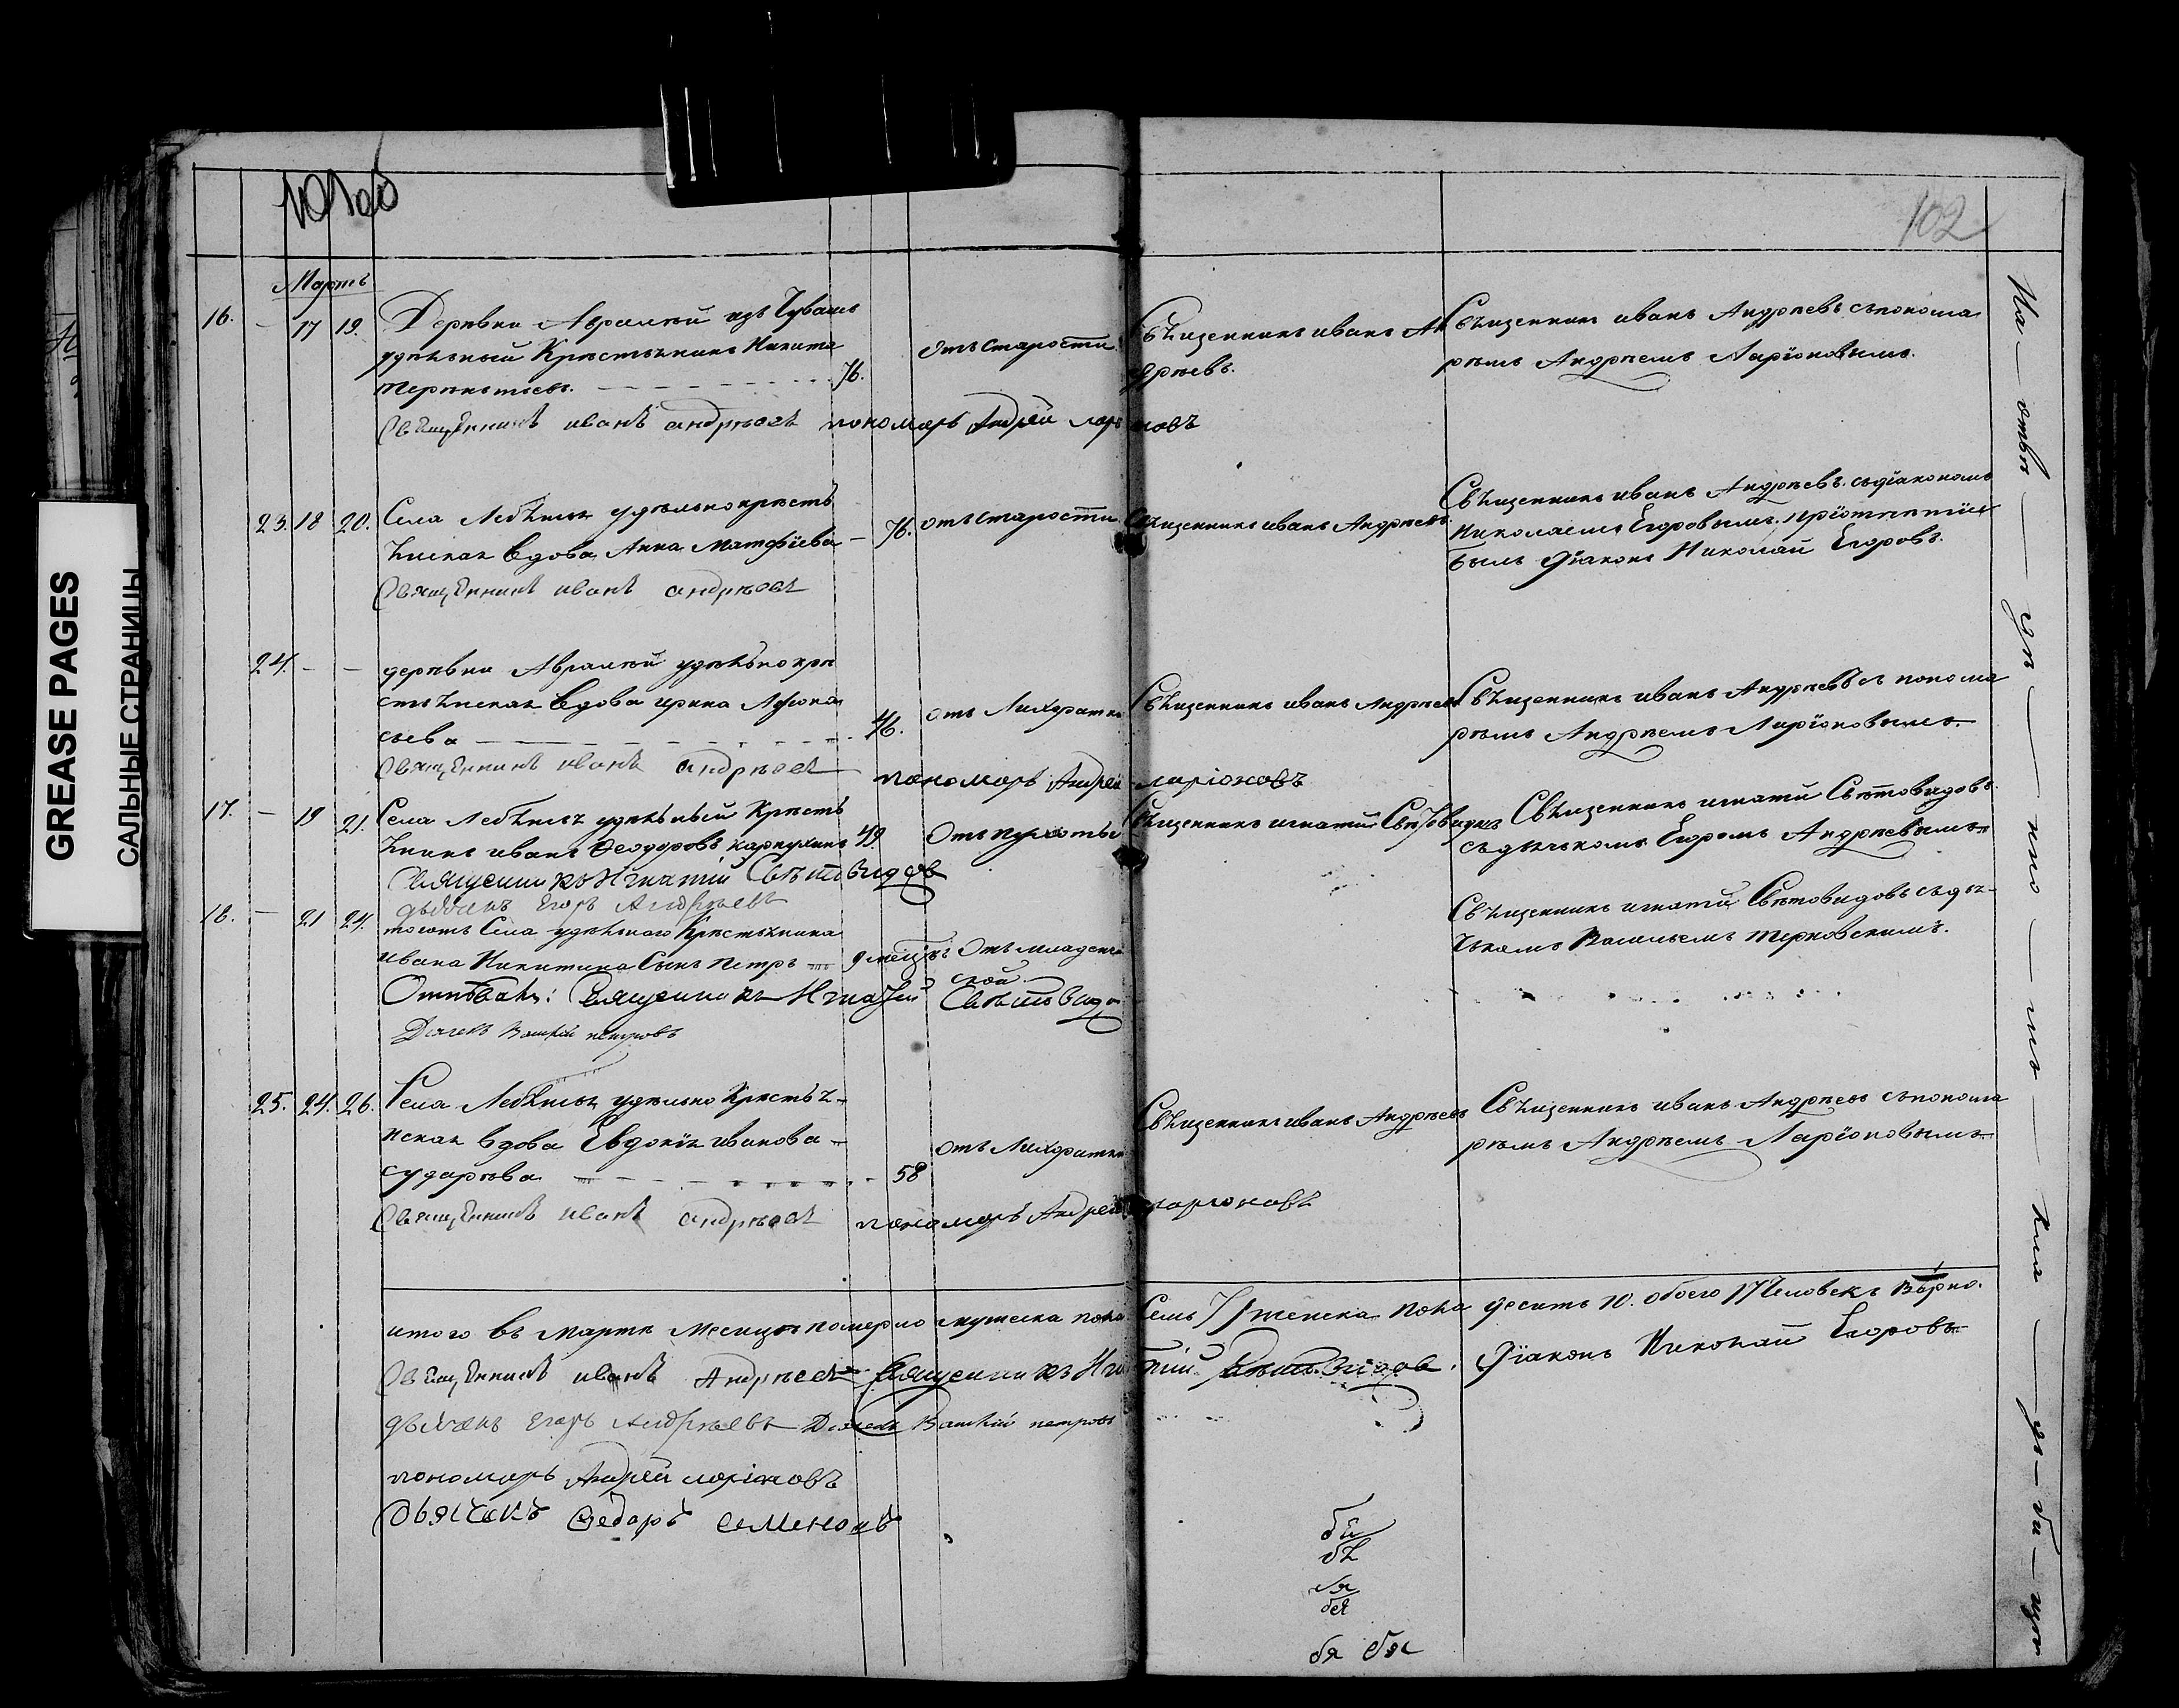 GREASE PAGES
САЛЬНЫЕ СТРАНИЦЫ
101об
102
Мартъ
16. - 17 19. Деревни Авралѣй изъ Чувашъ
удѣльный Крѣстьянинъ Никита
Терѣнтьевъ. 76.
отъ старости
Священникъ иванъ Ан
дрѣевъ.
Священникъ иванъ Андрѣевъ съ понома
рѣмъ Андрѣемъ Ларіоновымъ.
Священникъ иванъ андрѣевъ пономарь Андрей ларіоновъ
23. 18 20. Села Лебѣжья удѣльно крѣсть
янская вдова Анна Матфѣева - 76. отъ старости
Священникъ иванъ Андрѣевъ.
Священникъ иванъ Андрѣевъ. съ діакономъ
Николаемъ Егоровымъ.
былъ діаконъ Николай Егоровъ.
Священникъ иванъ андрѣевъ
24. - - деревни Авралѣй удѣльно крѣ
стьянская вдова ирина Афона
сьева 46.
отъ Лихоратки
Священникъ иванъ Андрѣевъ
Священникъ иванъ Андрѣевъ съ понома
рѣмъ Андрѣемъ Ларіоновымъ.
Священникъ иванъ андрѣевъ пономарь Андрей ларіоновъ
17. - 19 21. Села Лебѣжья удѣльный Крѣсть
янинъ иванъ Ѳеодоровъ карпухинъ 49.
Священникъ игнатій Свѣтовидовъ
Священникъ игнатій Свѣтовидовъ
съ дьячькомъ Егоромъ Андрѣевымъ
Священникъ Игнатій Свѣтовидовъ
дьячекъ Егоръ Андрѣевъ
18. - 21 24. тогожъ Села удѣльнаго Крѣстьянина
ивана Никитина Сынъ Петръ 9 мѣсяцъ
Отъ младенче
ской.
Священникъ игнатій Свѣтовидовъ съ дья-
чькомъ Васильемъ
Отпѣвалъ: Священникъ Игнатій Свѣтовидо
Дьячекъ Василій петровъ
25. 24. 26. Села Лебѣжья удѣльно Крѣстья-
нская вдова Евдокія иванова
сударѣва 58
отъ Лихоратки
Священникъ иванъ Андрѣевъ
Священникъ иванъ Андрѣевъ съ понома
рѣмъ Андрѣемъ Ларіоновымъ
Священникъ иванъ андрѣевъ пономарь Андрей ларіоновъ
итого въ мартѣ месяцѣ померло мужеска пола Семь 7 женска пола десять 10. обоего 17 человекъ вѣрно.
Священникъ иванъ Андрѣевъ Священникъ Игнатій Свѣтовидов. Діаконъ Николай Егоровъ
дьячекъ Егоръ Андрѣевъ Дьячекъ Василій петровъ
пономарь Андрей ларіоновъ
Дьячекъ Ѳедоръ Семеновъ
бя бя